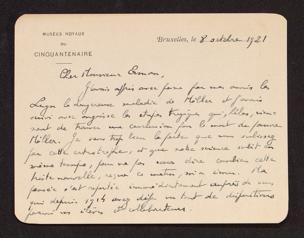 MUSÉES ROYAUX
DU
CINQUANTENAIRE
Bruxelles, le 8 octobre 1921
Cher Monsieur Erman,
J'avais appris avec peine par nos amis les
la dangereuse maladie de Möller et j'avais
suivi avec angoisse les étapes tragiques qui, hélas, vien-
nent de trouver une conclusion par la mort de pauvre
Möller. Je sais trop bien la perte que vous subissez
par cette catastrophe, et que notre science subit en
même temps, pour ne pas vous dire combien cette
triste nouvelle, reçue ce matin, m'a ému. Ma
pensée s'est reportée immédiatement auprès de vous
qui depuis 1914 avez déjà vu tant de disparitions
parmi vos élèves et collaborateurs.